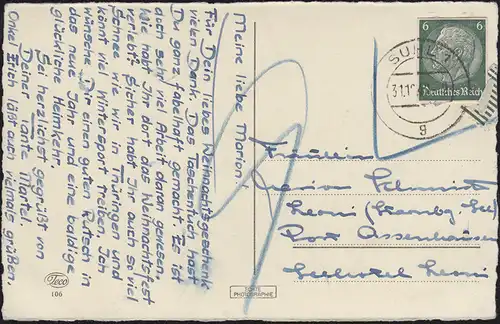 Meine liebe Marion!
Für Dein liebes Weihnachtsgeschenk
vielen Dank. Das Taschentuch hast
Du ganz fabelhaft gemacht. Es ist
doch sehr viel Arbeit daran gewesen.
Wie habt Ihr dort das Weihnachtsfest
verlebt? Sicher habt Ihr auch so viel
Schnee wie wir in Thüringen und
könnt viel Wintersport treiben. Ich
wünsche Dir einen guten Rutsch in
das neue Jahr und eine baldige
glückliche Heimkehr.
Sei herzlichst gegrüßt von
Deiner Tante Martel.
Onkel Erich läßt auch vielmals grüßen.
6 6
Deutsches Reich
SUHL
g
Fräulein
Marion Schmidt
Leoni (Starnbg. See)
Post Assenhausen
Seehotel Leoni
Teco
106
ECHTE
PHOTOGRAPHIE